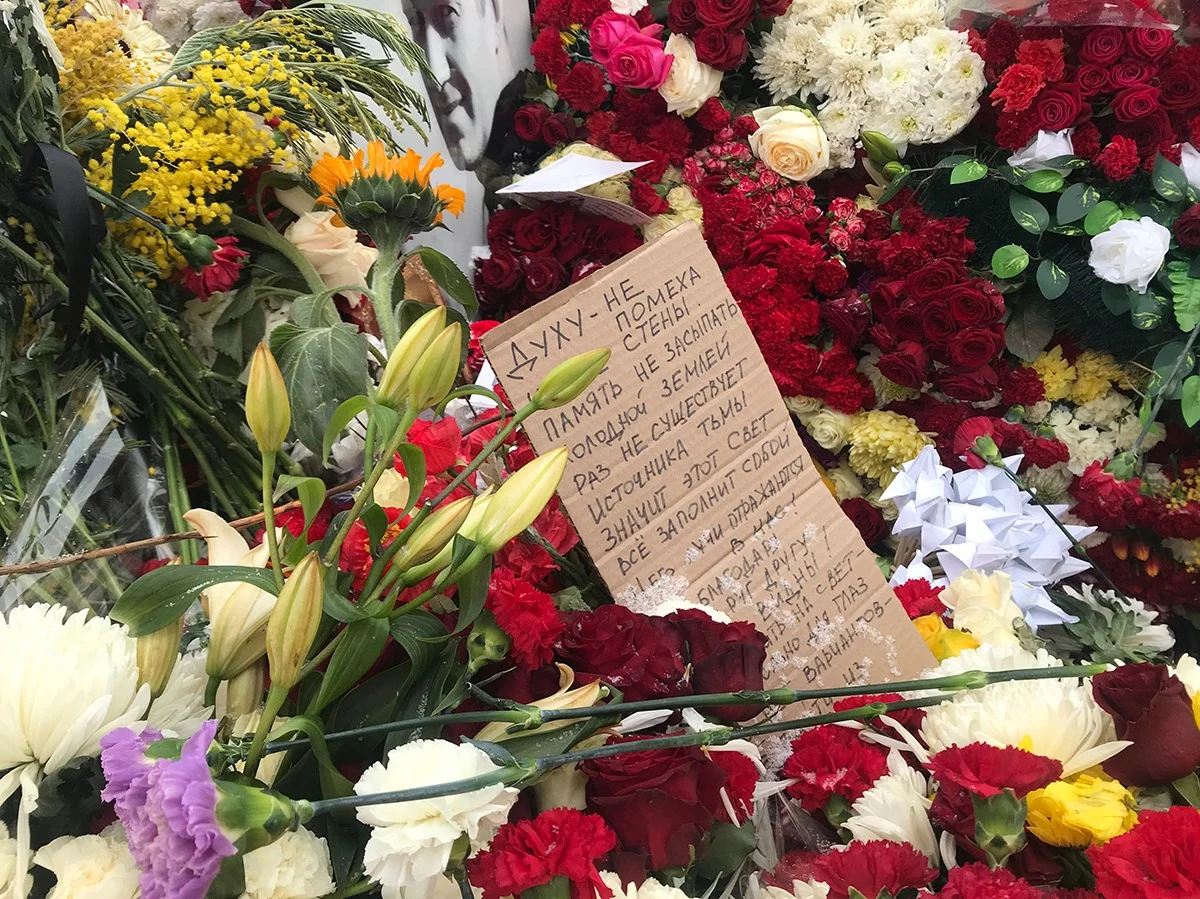 ДУХУ - НЕ
ПОМЕХА
СТЕНЫ.
ПАМЯТЬ НЕ ЗАСЫПАТЬ
ХОЛОДНОЙ ЗЕМЛЕЙ
РАЗ НЕ СУЩЕСТВУЕТ
ИСТОЧНИКА ТЬМЫ
ЗНАЧИТ ЭТОТ СВЕТ
ВСЁ ЗАПОЛНИТ СОБОЙ
ОТРАЖАЮТСЯ
В НАС!
ДРУГ ДРУГУ
ВИДНЫ!
НА СВЕТ
НО ДЛЯ ГЛАЗ
ВАРИАНТОВ-
ИЗ